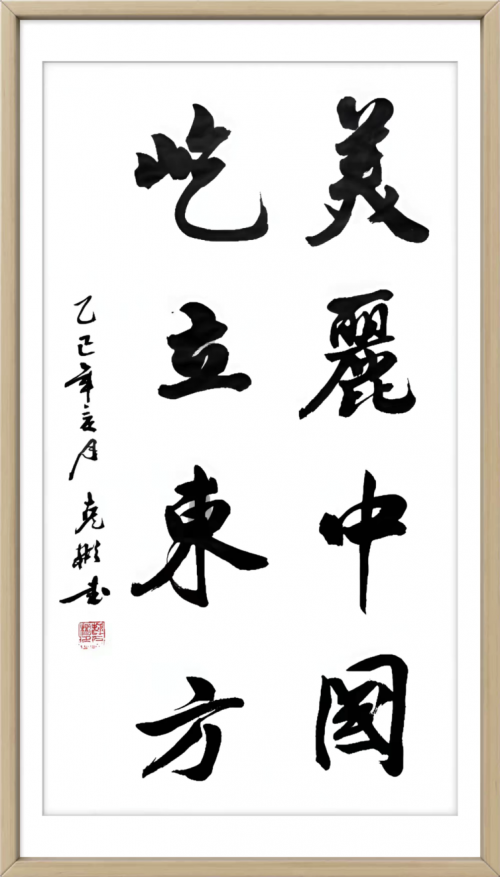 美麗中國
屹立東方
乙巳年亥月 克彬书